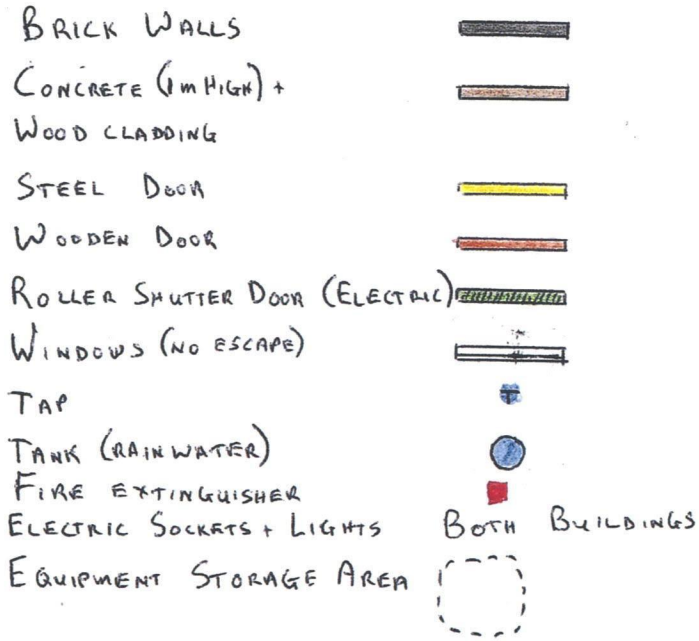 BRICK WALLS
CONCRETE (1m HIGH) +
WOOD CLADDING
STEEL DOOR
WOODEN DOOR
ROLLER SHUTTER DOOR (ELECTRIC)
WINDOWS (NO ESCAPE)
TAP T
TANK (RAINWATER)
FIRE EXTINGUISHER
ELECTRIC SOCKETS + LIGHTS BOTH BUILDINGS
EQUIPMENT STORAGE AREA